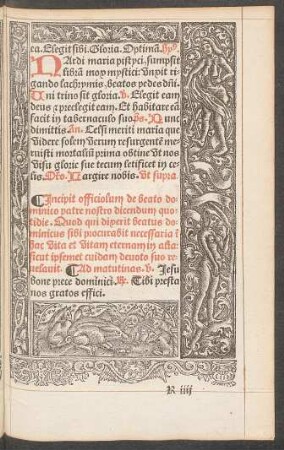 ea. Elegit sibi. Gloria. Optimā. Hyp̄.
Nardi maria pistyci. sumpsit
librā mox mystici: Vnxit ri
gando lachrymis. beatos pedes dñi.
Uni trino sit gloria. V. Elegit eam
deus ⁊ preelegit eam. Et habitare eā
facit in tabernaculo suo. Nunc
dimittis An. Celsi meriti maria que
videre solem verum resurgentē me
ruisti mortaliū prima obtine vt nos
visu glorie sue tecum letificet in ce
lis. Largire nobis. Vt supra.
¶ Incipit officiolum de beato do
minico patre nostro dicendum quo
tidie. Quod qui dixerit beatus do
minicus sibi procurabit necessaria ĩ
hac vita et vitam eternam: vt asta
ficat ipsemet cuidam deuoto suo re
uelauit. ¶ Ad matutinas. V. Jesu
bone prece dominici. R. Tibi presta
nos gratos effici.
R iiij